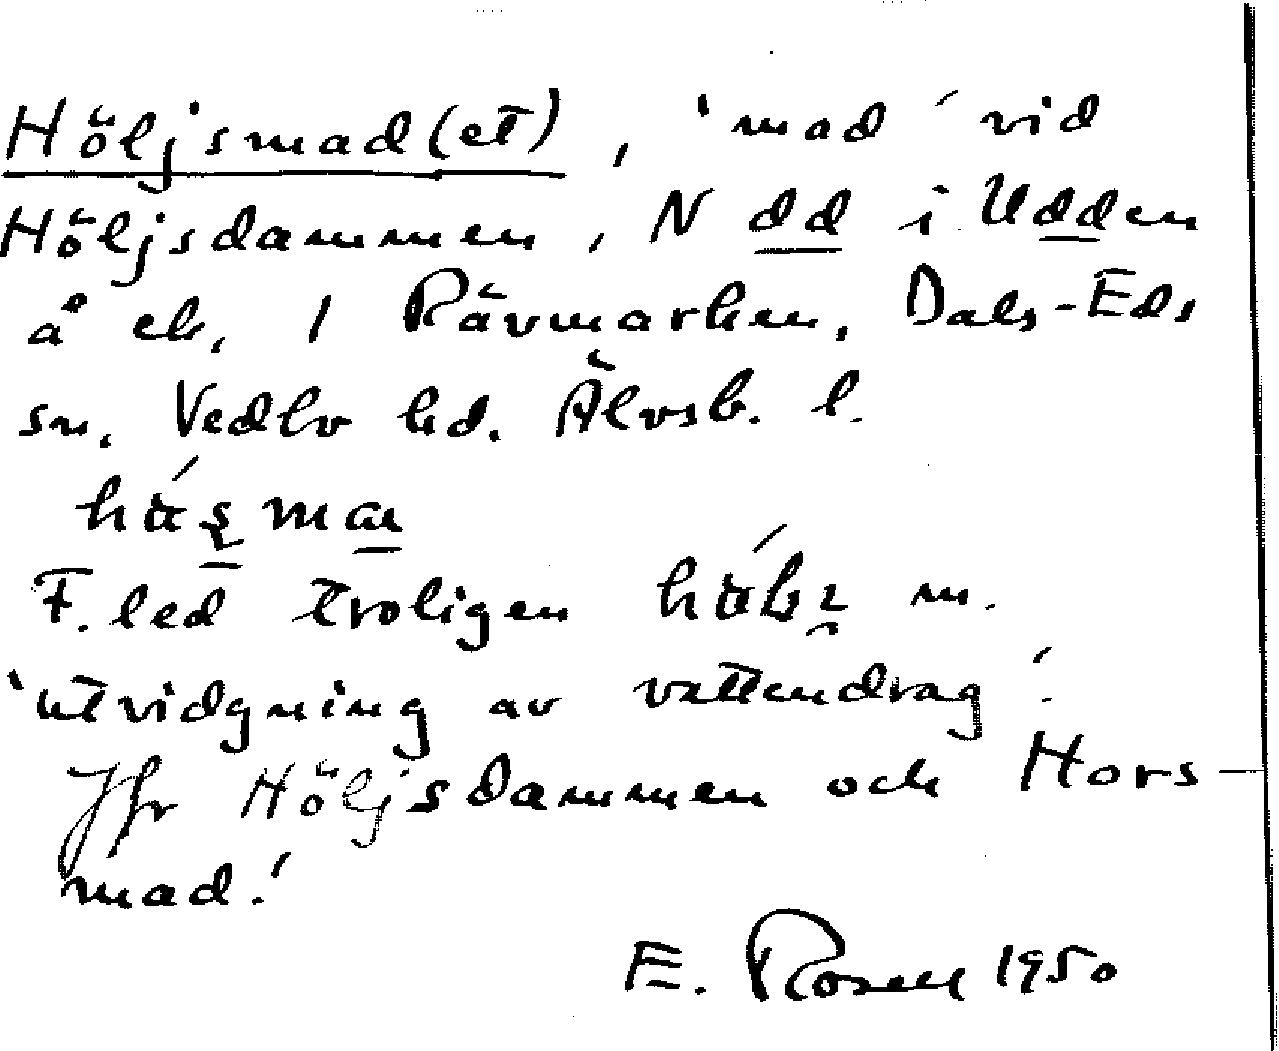 Höljsmad(et), 'mad' vid
Höljsdammen, N dd i Udden
å ek, 1 Rävmarken, Dals-Eds
sn, Vedbo hd. Älvsb. l.
F. led troligen m.
'utvidgning av vattendrag'.
Jfr Höljsdammen och Hors-
mad!
E. Rosell 1950